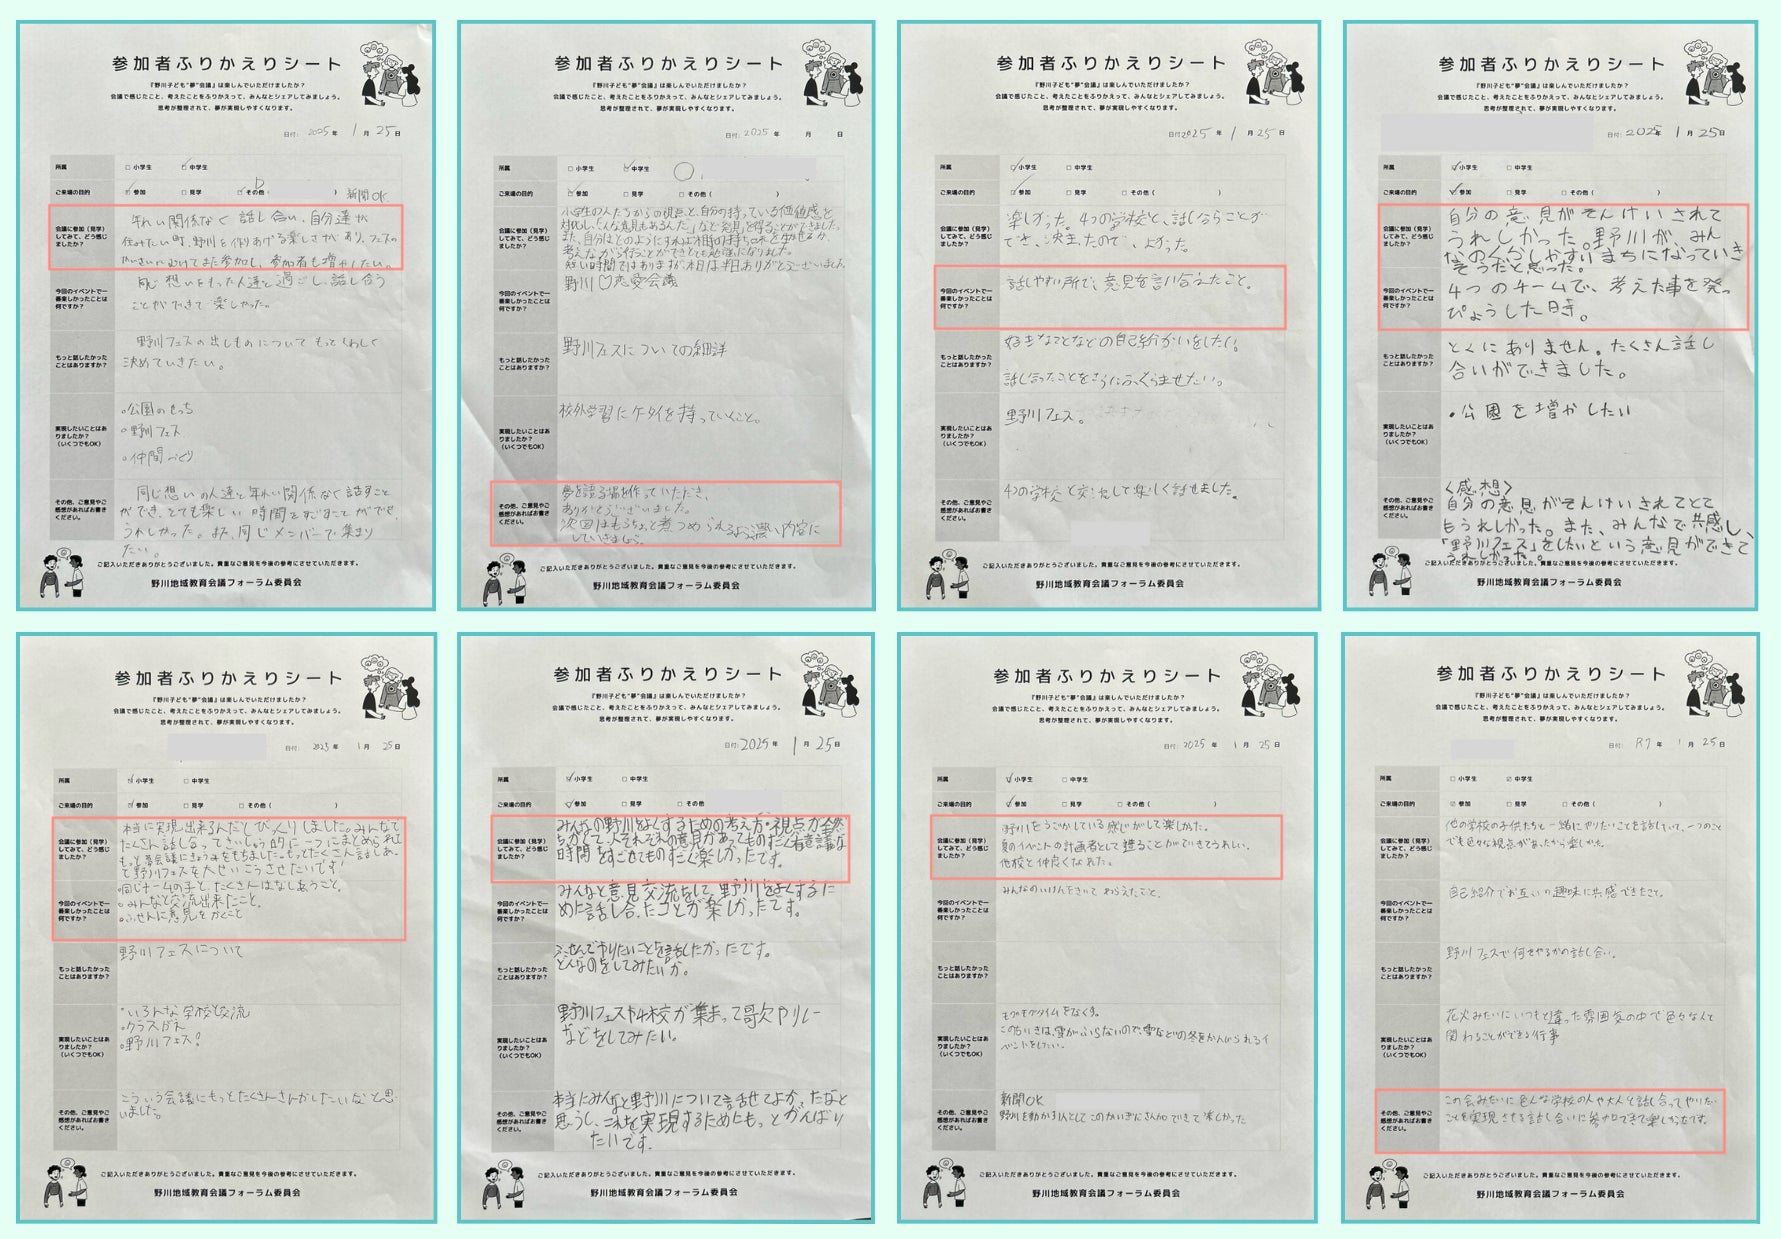 参加者ふりかえりシート
『野川子ども“夢”会議』は楽しんでいただけましたか？
会議で感じたこと、考えたことをふりかえって、みんなとシェアしてみましょう。
思考が整理されて、夢が実現しやすくなります。
日付: 2025 年 1 月 25 日
所属 □ 小学生 ☑ 中学生
ご来場の目的 □ 参加 □ 見学 ☑ その他 ( )
新聞OK
会議に参加（見学）してみて、どう感じましたか？
年れい関係なく 話し合い、自分達が
住みたい町、野川を作りあげる楽しさがあり、フェスの
かいさいにむけてまた参加し、参加者も増やしたい。
今回のイベントで一番楽しかったことは何ですか？
同じ想いをもった人達と過ごし、話し合う
ことができて楽しかった。
もっと話したかったことはありますか？
野川フェスの出しものについてもっとくわしく
決めていきたい。
実現したいことはありましたか？（いくつでもOK）
・公園のせっち
・野川フェス
・仲間づくり
その他、ご意見やご感想があればお書きください。
同じ想いの人達と年れい関係なく話すこと
ができ、とても楽しい時間をすごすことができ、
うれしかった。また、同じメンバーで集まり
たい。
ご記入いただきありがとうございました。貴重なご意見を今後の参考にさせていただきます。
野川地域教育会議フォーラム委員会
参加者ふりかえりシート
『野川子ども“夢”会議』は楽しんでいただけましたか？
会議で感じたこと、考えたことをふりかえって、みんなとシェアしてみましょう。
思考が整理されて、夢が実現しやすくなります。
日付: 2025 年 月 日
所属 □ 小学生 ☑ 中学生
ご来場の目的 ☑ 参加 □ 見学 □ その他 ( )
会議に参加（見学）してみて、どう感じましたか？
小学生の人たちからの視点と、自分の持っている価値感を
対比し、「こんな意見もあるんだ」など発見を得ることができました。
また、自分はどのようにすれば相手の持ち味を生かせるか、
考えながら行うことができとても勉強になりました。
短い時間ではありますが、本日は半日ありがとうございました。
今回のイベントで一番楽しかったことは何ですか？
野川♡恋愛会議
もっと話したかったことはありますか？
野川フェスについての細詳
実現したいことはありましたか？（いくつでもOK）
校外学習にケータイを持っていくこと。
その他、ご意見やご感想があればお書きください。
夢を語る場を作っていただき、
ありがとうございました。
次回はもうちょっと煮つめられるよう濃い内容に
していきましょう。
ご記入いただきありがとうございました。貴重なご意見を今後の参考にさせていただきます。
野川地域教育会議フォーラム委員会
参加者ふりかえりシート
『野川子ども“夢”会議』は楽しんでいただけましたか？
会議で感じたこと、考えたことをふりかえって、みんなとシェアしてみましょう。
思考が整理されて、夢が実現しやすくなります。
日付: 2025 年 1 月 25 日
所属 ☑ 小学生 □ 中学生
ご来場の目的 ☑ 参加 □ 見学 □ その他 ( )
会議に参加（見学）してみて、どう感じましたか？
楽しかった。4つの学校と、話しあうことが
でき、決まったので、よかった。
今回のイベントで一番楽しかったことは何ですか？
話しやすい所で、意見を言い合えたこと。
もっと話したかったことはありますか？
好きなことなどの自己紹かいをしたい。
話し合ったことをさらにふくらませたい。
実現したいことはありましたか？（いくつでもOK）
野川フェス。
その他、ご意見やご感想があればお書きください。
4つの学校と交流して楽しく話せました。
ご記入いただきありがとうございました。貴重なご意見を今後の参考にさせていただきます。
野川地域教育会議フォーラム委員会
参加者ふりかえりシート
『野川子ども“夢”会議』は楽しんでいただけましたか？
会議で感じたこと、考えたことをふりかえって、みんなとシェアしてみましょう。
思考が整理されて、夢が実現しやすくなります。
日付: 2025年 1 月 25 日
所属 ☑ 小学生 □ 中学生
ご来場の目的 ☑ 参加 □ 見学 □ その他 ( )
会議に参加（見学）してみて、どう感じましたか？
自分の意見がそんけいされて
うれしかった。野川が、みん
なのくらしやすいまちになっていき
そうだと思った。
今回のイベントで一番楽しかったことは何ですか？
4つのチームで、考えた事を発っ
ぴょうした時。
もっと話したかったことはありますか？
とくにありません。たくさん話し
合いができました。
実現したいことはありましたか？（いくつでもOK）
・公園を増やしたい
その他、ご意見やご感想があればお書きください。
〈感想〉
自分の意見がそんけいされてとて
もうれしかった。また、みんなで共感し、
「野川フェス」をしたいという意見ができて
うれしかった。
ご記入いただきありがとうございました。貴重なご意見を今後の参考にさせていただきます。
野川地域教育会議フォーラム委員会
参加者ふりかえりシート
『野川子ども“夢”会議』は楽しんでいただけましたか？
会議で感じたこと、考えたことをふりかえって、みんなとシェアしてみましょう。
思考が整理されて、夢が実現しやすくなります。
日付: 2025 年 1 月 25 日
所属 ☑ 小学生 □ 中学生
ご来場の目的 ☑ 参加 □ 見学 □ その他 ( )
会議に参加（見学）してみて、どう感じましたか？
本当に実現出来るんだとびっくりしました。みんなで
たくさん話し合ってさいしゅう的に一つにまとめられ
もっと夢会議にきょうみをもちました。もっとたくさん話しあっ
て野川フェスを大せいこうさせたいです！
今回のイベントで一番楽しかったことは何ですか？
・同じチームの子と、たくさんはなしあうこと。
・みんなと交流出来たこと。
・ふせんに意見をかくこと
もっと話したかったことはありますか？
野川フェスについて
実現したいことはありましたか？（いくつでもOK）
・いろんな学校と交流
・クラスがえ
・野川フェス！
その他、ご意見やご感想があればお書きください。
こういう会議にもっとたくさんさんかしたいなと思
いました。
ご記入いただきありがとうございました。貴重なご意見を今後の参考にさせていただきます。
野川地域教育会議フォーラム委員会
参加者ふりかえりシート
『野川子ども“夢”会議』は楽しんでいただけましたか？
会議で感じたこと、考えたことをふりかえって、みんなとシェアしてみましょう。
思考が整理されて、夢が実現しやすくなります。
日付: 2025 年 1 月 25 日
所属 ☑ 小学生 □ 中学生
ご来場の目的 ☑ 参加 □ 見学 □ その他
会議に参加（見学）してみて、どう感じましたか？
みんなの野川をよくするための考え方・視点が全然
ちがくて、人それぞれの意見があってものすごく有意義な
時間をすごせてものすごく楽しかったです。
今回のイベントで一番楽しかったことは何ですか？
みんなと意見交流をして、野川をよくするた
めに話し合ったことが楽しかったです。
もっと話したかったことはありますか？
ふせんでやりたいことを話したかったです。
どんなのをしてみたいか。
実現したいことはありましたか？（いくつでもOK）
野川フェスや4校が集まって哥欠やリレー
などをしてみたい。
その他、ご意見やご感想があればお書きください。
本当にみんなと野川について話せてよかったなと
思うし、これを実現するためにもっとがんばり
たいです。
ご記入いただきありがとうございました。貴重なご意見を今後の参考にさせていただきます。
野川地域教育会議フォーラム委員会
参加者ふりかえりシート
『野川子ども“夢”会議』は楽しんでいただけましたか？
会議で感じたこと、考えたことをふりかえって、みんなとシェアしてみましょう。
思考が整理されて、夢が実現しやすくなります。
日付: 2025 年 1 月 25 日
所属 ☑ 小学生 □ 中学生
ご来場の目的 ☑ 参加 □ 見学 □ その他 ( )
会議に参加（見学）してみて、どう感じましたか？
野川をうごかしている感じがして楽しかた。
夏のイベントの計画者として進ることができてうれしい。
他校と仲良くなれた。
今回のイベントで一番楽しかったことは何ですか？
みんなのいけんをきいてわらえたこと。
もっと話したかったことはありますか？
実現したいことはありましたか？（いくつでもOK）
モグモグタイムをなくす。
このちいきは、雪がふらないので、雪などの冬をかんじられるイ
ベントをしたい。
その他、ご意見やご感想があればお書きください。
新聞OK
野川を動かす1人としてこのかいぎにさんかできて楽しかった
ご記入いただきありがとうございました。貴重なご意見を今後の参考にさせていただきます。
野川地域教育会議フォーラム委員会
参加者ふりかえりシート
『野川子ども“夢”会議』は楽しんでいただけましたか？
会議で感じたこと、考えたことをふりかえって、みんなとシェアしてみましょう。
思考が整理されて、夢が実現しやすくなります。
日付: R7 年 1 月 25 日
所属 □ 小学生 ☑ 中学生
ご来場の目的 ☑ 参加 □ 見学 □ その他 ( )
会議に参加（見学）してみて、どう感じましたか？
他の学校の子供たちと一緒にやりたいことを話していて、一つのこと
でも色々な視点があったから楽しかった。
今回のイベントで一番楽しかったことは何ですか？
自己紹介でお互いの趣味に共感できたこと。
もっと話したかったことはありますか？
野川フェスで何をやるかの話し合い。
実現したいことはありましたか？（いくつでもOK）
花火みたいにいつもと違った雰囲気の中で色々な人と
関わることができる行事
その他、ご意見やご感想があればお書きください。
この会みたいに色んな学校の人や大人と話し合ってやりたい
ことを実現させる話し合いに参加できて楽しかったです。
ご記入いただきありがとうございました。貴重なご意見を今後の参考にさせていただきます。
野川地域教育会議フォーラム委員会